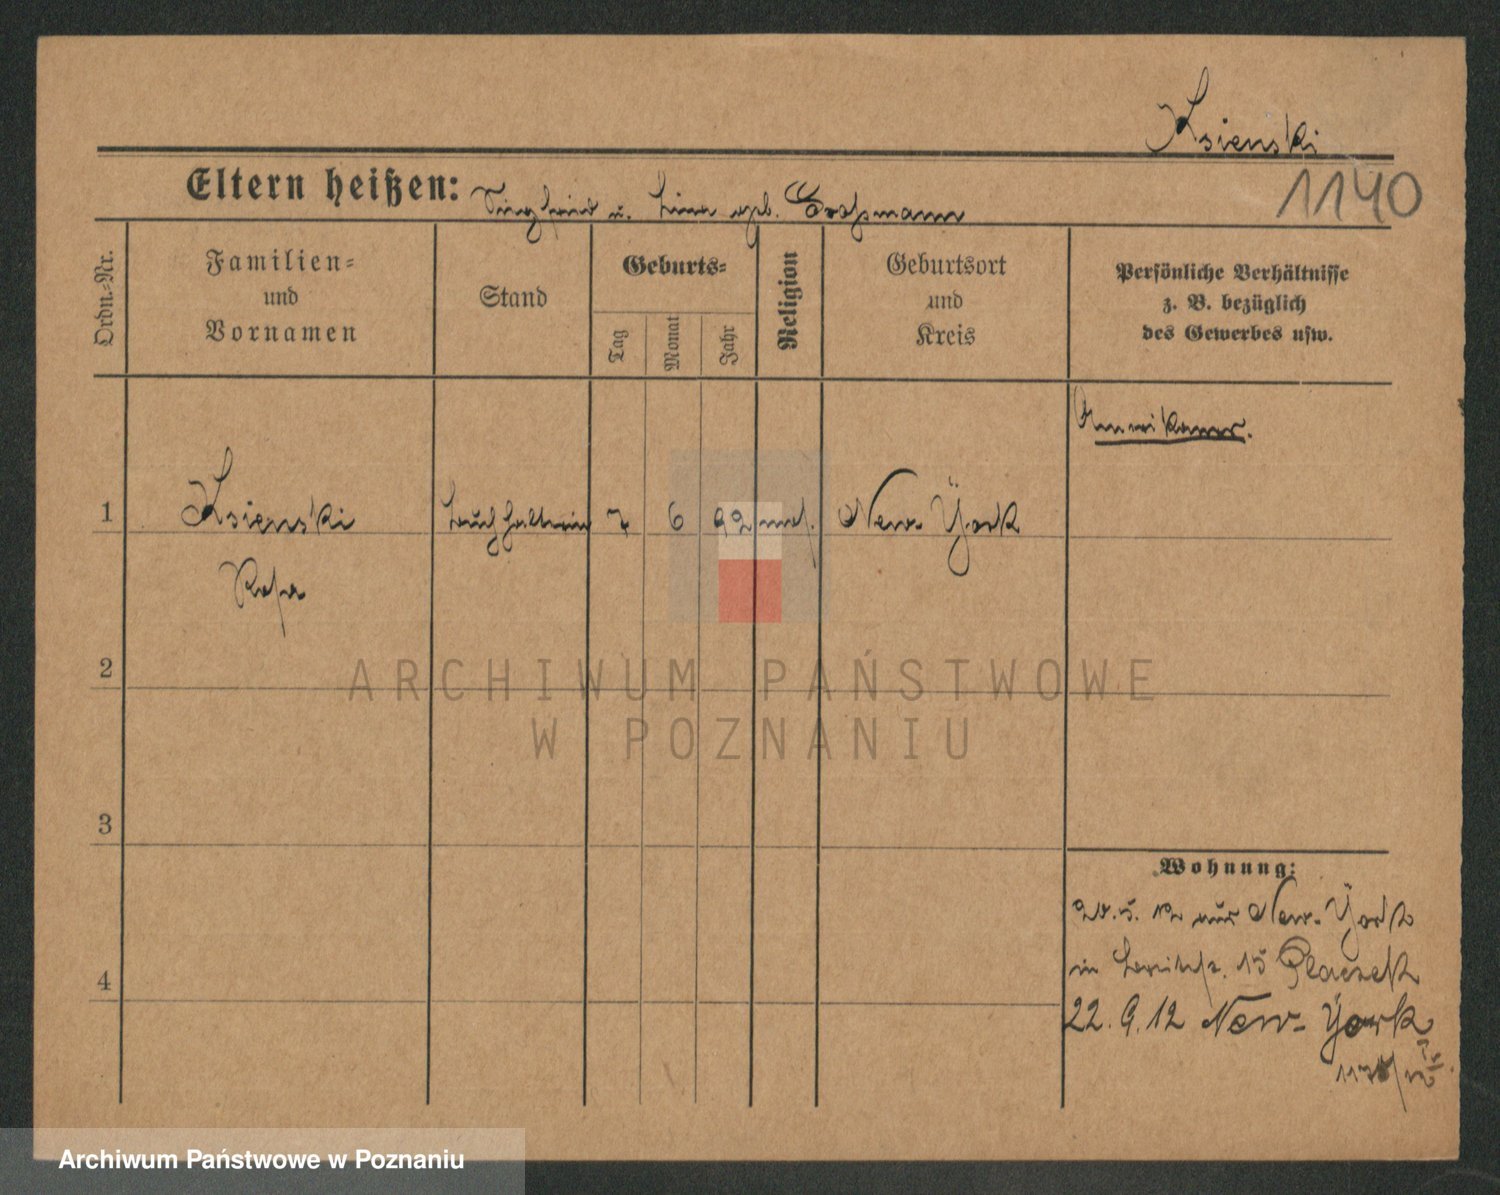 Ksienski
1140
Eltern heißen: Siegfried u. Lina geb. Großmann
Ordn.-Nr.
Familien-
und
Vornamen
Stand
Geburts-
Tag
Monat
Jahr
Religion
Geburtsort
und
Kreis
Persönliche Verhältnisse
z. B. bezüglich
des Gewerbes usw.
Amerikaner.
1 Ksienski Buchhalterin 7 6 92 mos. New-York
Rosa
2
3
4
Wohnung:
5. 12 aus New-York
in 15 Placzek
22. 9. 12 New-York
ARCHIWUM PAŃSTWOWE
W POZNANIU
Archiwum Państwowe w Poznaniu